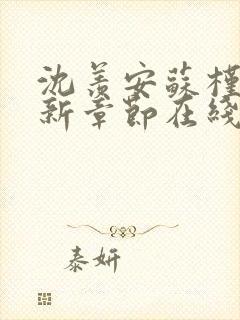 沈羡安蘇槿
新章節在綫
泰妍